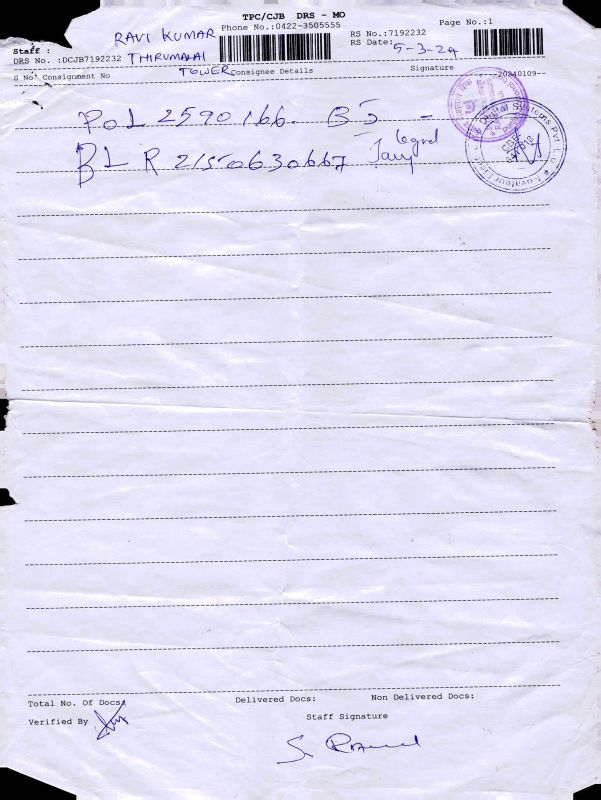 TPC/CJB DRS - MO
RAVI KUMAR Phone No.:0422-3505555 Page No.:1
RS No.:7192232
Staff : RS Date: 5-3-24
DRS No. :DCJB7192232 THIRUMALAI
TOWER
S No Consignment No Consignee Details Signature --20240109--
POL 2590166. BJ -
BLR 21550630667
Total No. Of Docs: Delivered Docs: Non Delivered Docs:
Verified By Staff Signature